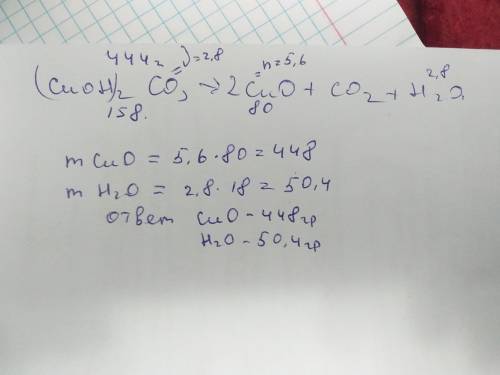 444г ν=2,8 n=5,6 2,8
(CuOH)2 CO3 → 2CuO + CO2 + H2O
158. 80
m CuO = 5,6·80 = 448
m H2O = 2,8·18 = 50,4
ответ CuO - 448гр
H2O - 50,4гр